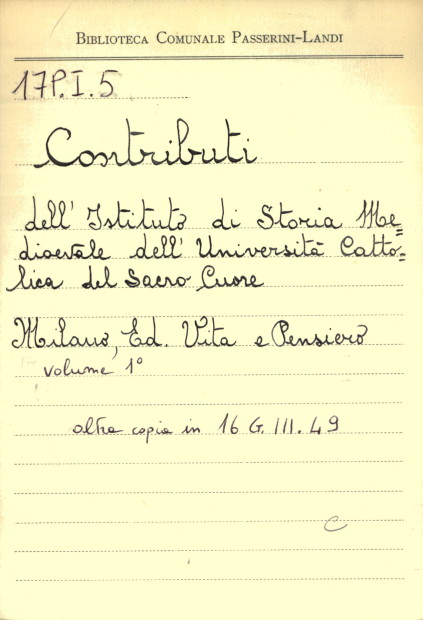 BIBLIOTECA COMUNALE PASSERINI-LANDI
17P.I.5
Contributi
dell' Istituto di Storia Me=
dioevale dell' Università Catto=
lica del Sacro Cuore
Milano, Ed. Vita e Pensiero
volume 1º
altra copia in 16 G. III. 49
C